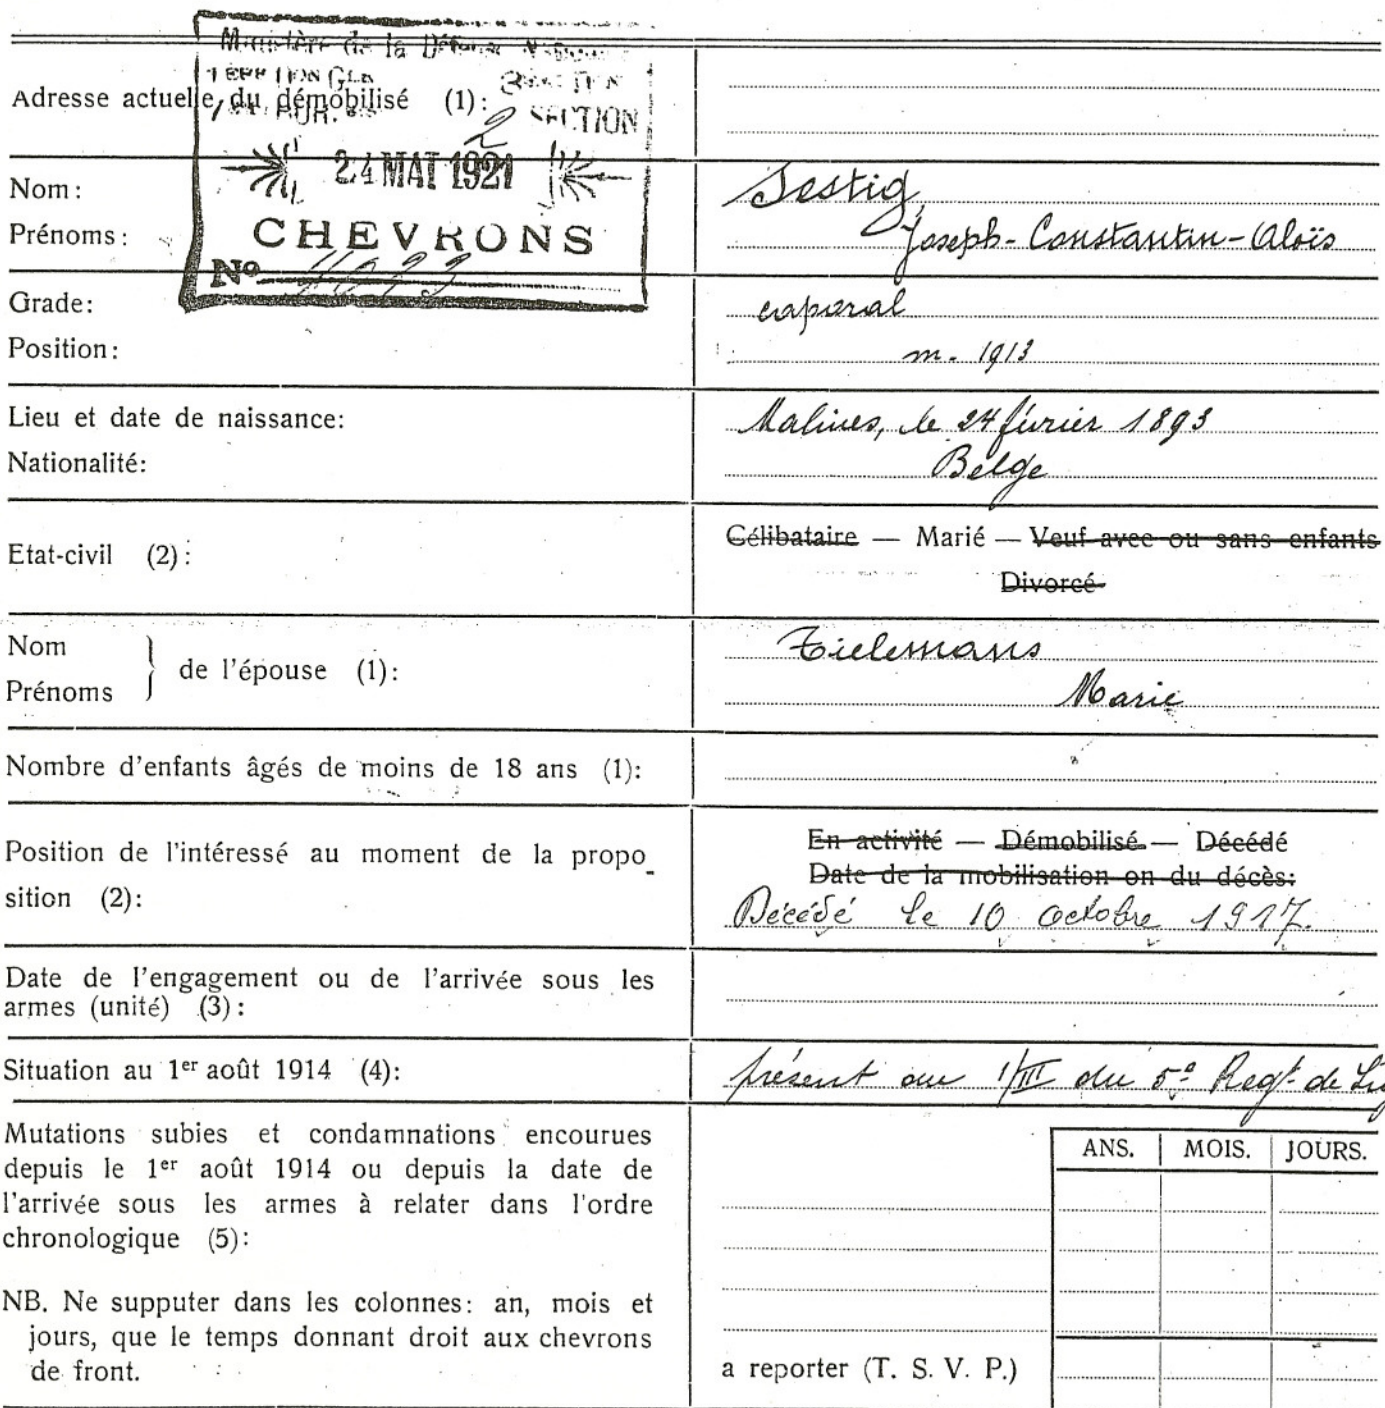 Ministère de la Défense
SECTION
2
24 MAI 1921
CHEVRONS
No
Adresse actuelle du démobilisé (1):
Nom: Sestig,
Prénoms: Joseph-Constantin-Aloïs
Grade: caporal
Position: m. 1913
Lieu et date de naissance: Malines, le 24 février 1893
Nationalité: Belge
Etat-civil (2): Célibataire — Marié — Veuf avec ou sans enfants
Divorcé
Nom
Prénoms } de l'épouse (1): Tielemans
Marie
Nombre d'enfants âgés de moins de 18 ans (1):
Position de l'intéressé au moment de la propo-
sition (2):
En activité — Démobilisé — Décédé
Date de la mobilisation on du décès:
Décédé le 10 octobre 1917.
Date de l'engagement ou de l'arrivée sous les
armes (unité) (3):
Situation au 1er août 1914 (4): présent au 1/III du 5e Regt. de Lig
Mutations subies et condamnations encourues
depuis le 1er août 1914 ou depuis la date de
l'arrivée sous les armes à relater dans l'ordre
chronologique (5):
NB. Ne supputer dans les colonnes: an, mois et
jours, que le temps donnant droit aux chevrons
de front.
ANS. MOIS. JOURS.
a reporter (T. S. V. P.)